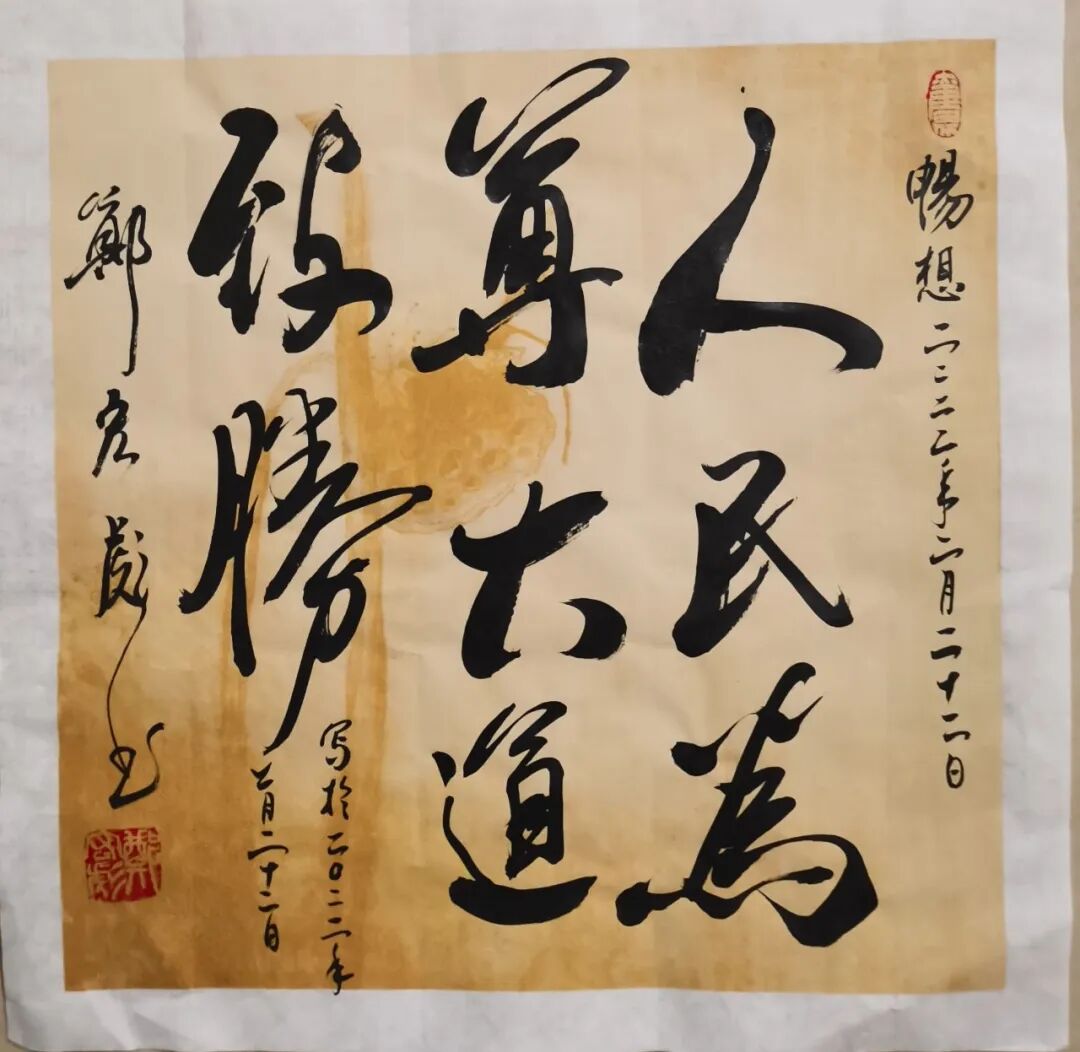 暢想二二二二年二月二十二日
人民為
尊大道
致勝
写於二〇二二年
二月二十二日
鄭宏彪书